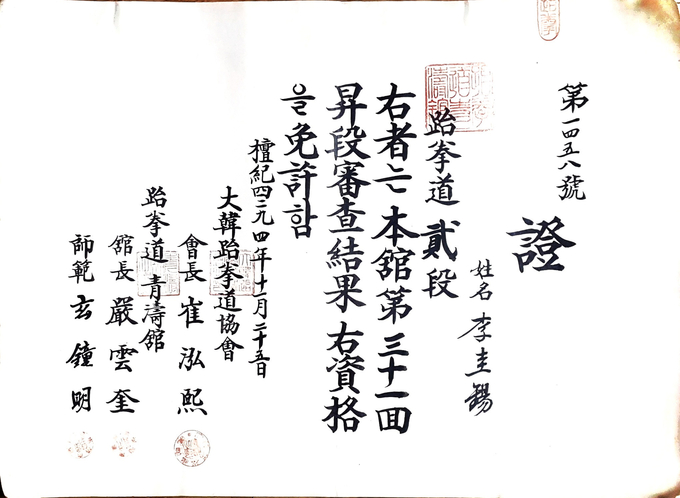 第一四五八號
證
姓名 李圭錫
跆拳道 貳段
右者는 本舘第三十一回
昇段審査結果 右資格
을 免許함
檀紀四二九四年十一月二十五日
大韓跆拳道協會
會長 崔泓熙
跆拳道 青濤舘
舘長 嚴雲奎
師範 玄鐘明